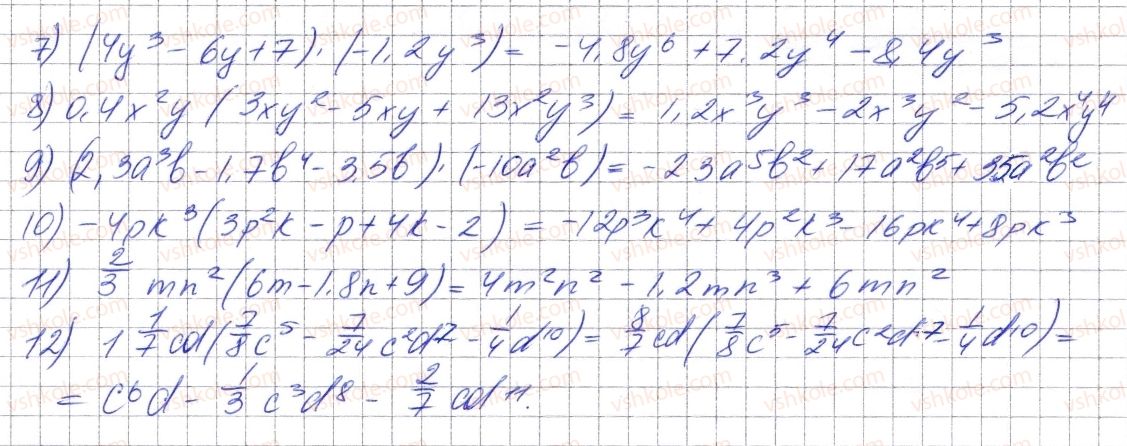 7) (4y³ − 6y + 7) · (−1,2y³) = −4,8y⁶ + 7,2y⁴ − 8,4y³
8) 0,4x²y (3xy² − 5xy + 13x²y³) = 1,2x³y³ − 2x³y² − 5,2x⁴y⁴
9) (2,3a³b − 1,7b⁴ − 3,5b) · (−10a²b) = −23a⁵b² + 17a²b⁵ + 35a²b²
10) −4pk³ (3p²k − p + 4k − 2) = −12p³k⁴ + 4p²k³ − 16pk⁴ + 8pk³
11) 2/3 mn² (6m − 1,8n + 9) = 4m²n² − 1,2mn³ + 6mn²
12) 1 1/7 cd (7/8 c⁵ − 7/24 c²d⁷ − 1/4 d¹⁰) = 8/7 cd (7/8 c⁵ − 7/24 c²d⁷ − 1/4 d¹⁰) =
= c⁶d − 1/3 c³d⁸ − 2/7 cd¹¹.
vshkole.com